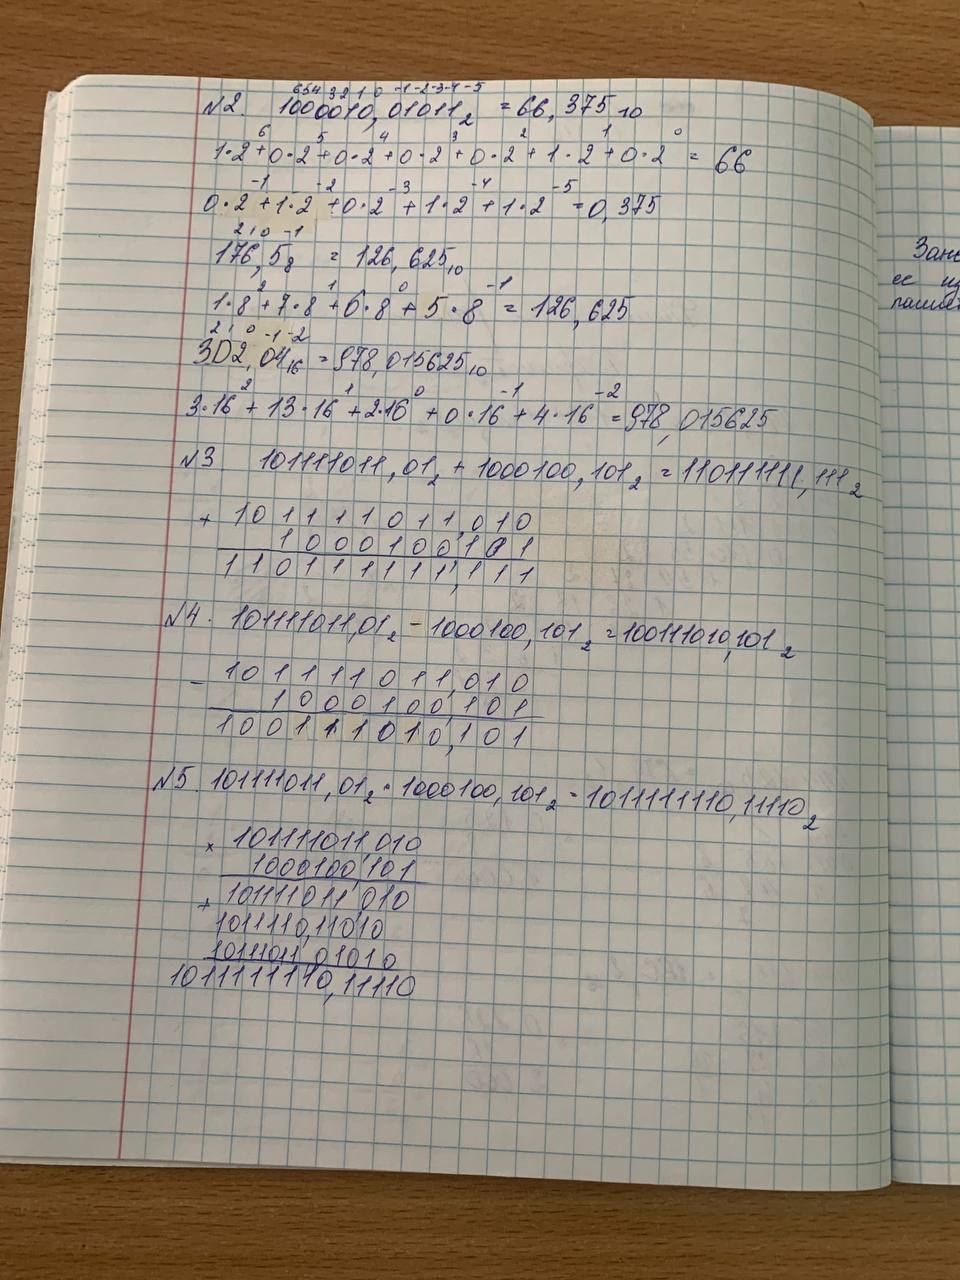 6543210 -1-2-3-4-5
№2. 1000010,01011₂ = 66,375₁₀
1·2⁶+0·2⁵+0·2⁴+0·2³+0·2²+1·2¹+0·2⁰ = 66
0·2⁻¹+1·2⁻²+0·2⁻³+1·2⁻⁴+1·2⁻⁵=0,375
2 1 0 -1
176,5₈ = 126,625₁₀
1·8²+7·8¹+6·8⁰+5·8⁻¹= 126,625
2 1 0 -1 -2
3D2,04₁₆ =978,015625₁₀
3·16²+13·16¹+2·16⁰+0·16⁻¹+4·16⁻²=978,015625
№3 101111011,01₂ + 1000100,101₂ =110111111,111₂
+ 101111011,010
1000100,101
110111111,111
№4. 101111011,01₂ - 1000100,101₂ =100111010,101₂
- 101111011,010
1000100,101
100111010,101
№5. 101111011,01₂ · 1000100,101₂ = 1011111110,11110₂
× 101111011,010
1000100,101
+ 101111011,010
1011110,11010
10111011,01010
1011111110,11110
Зан
ес